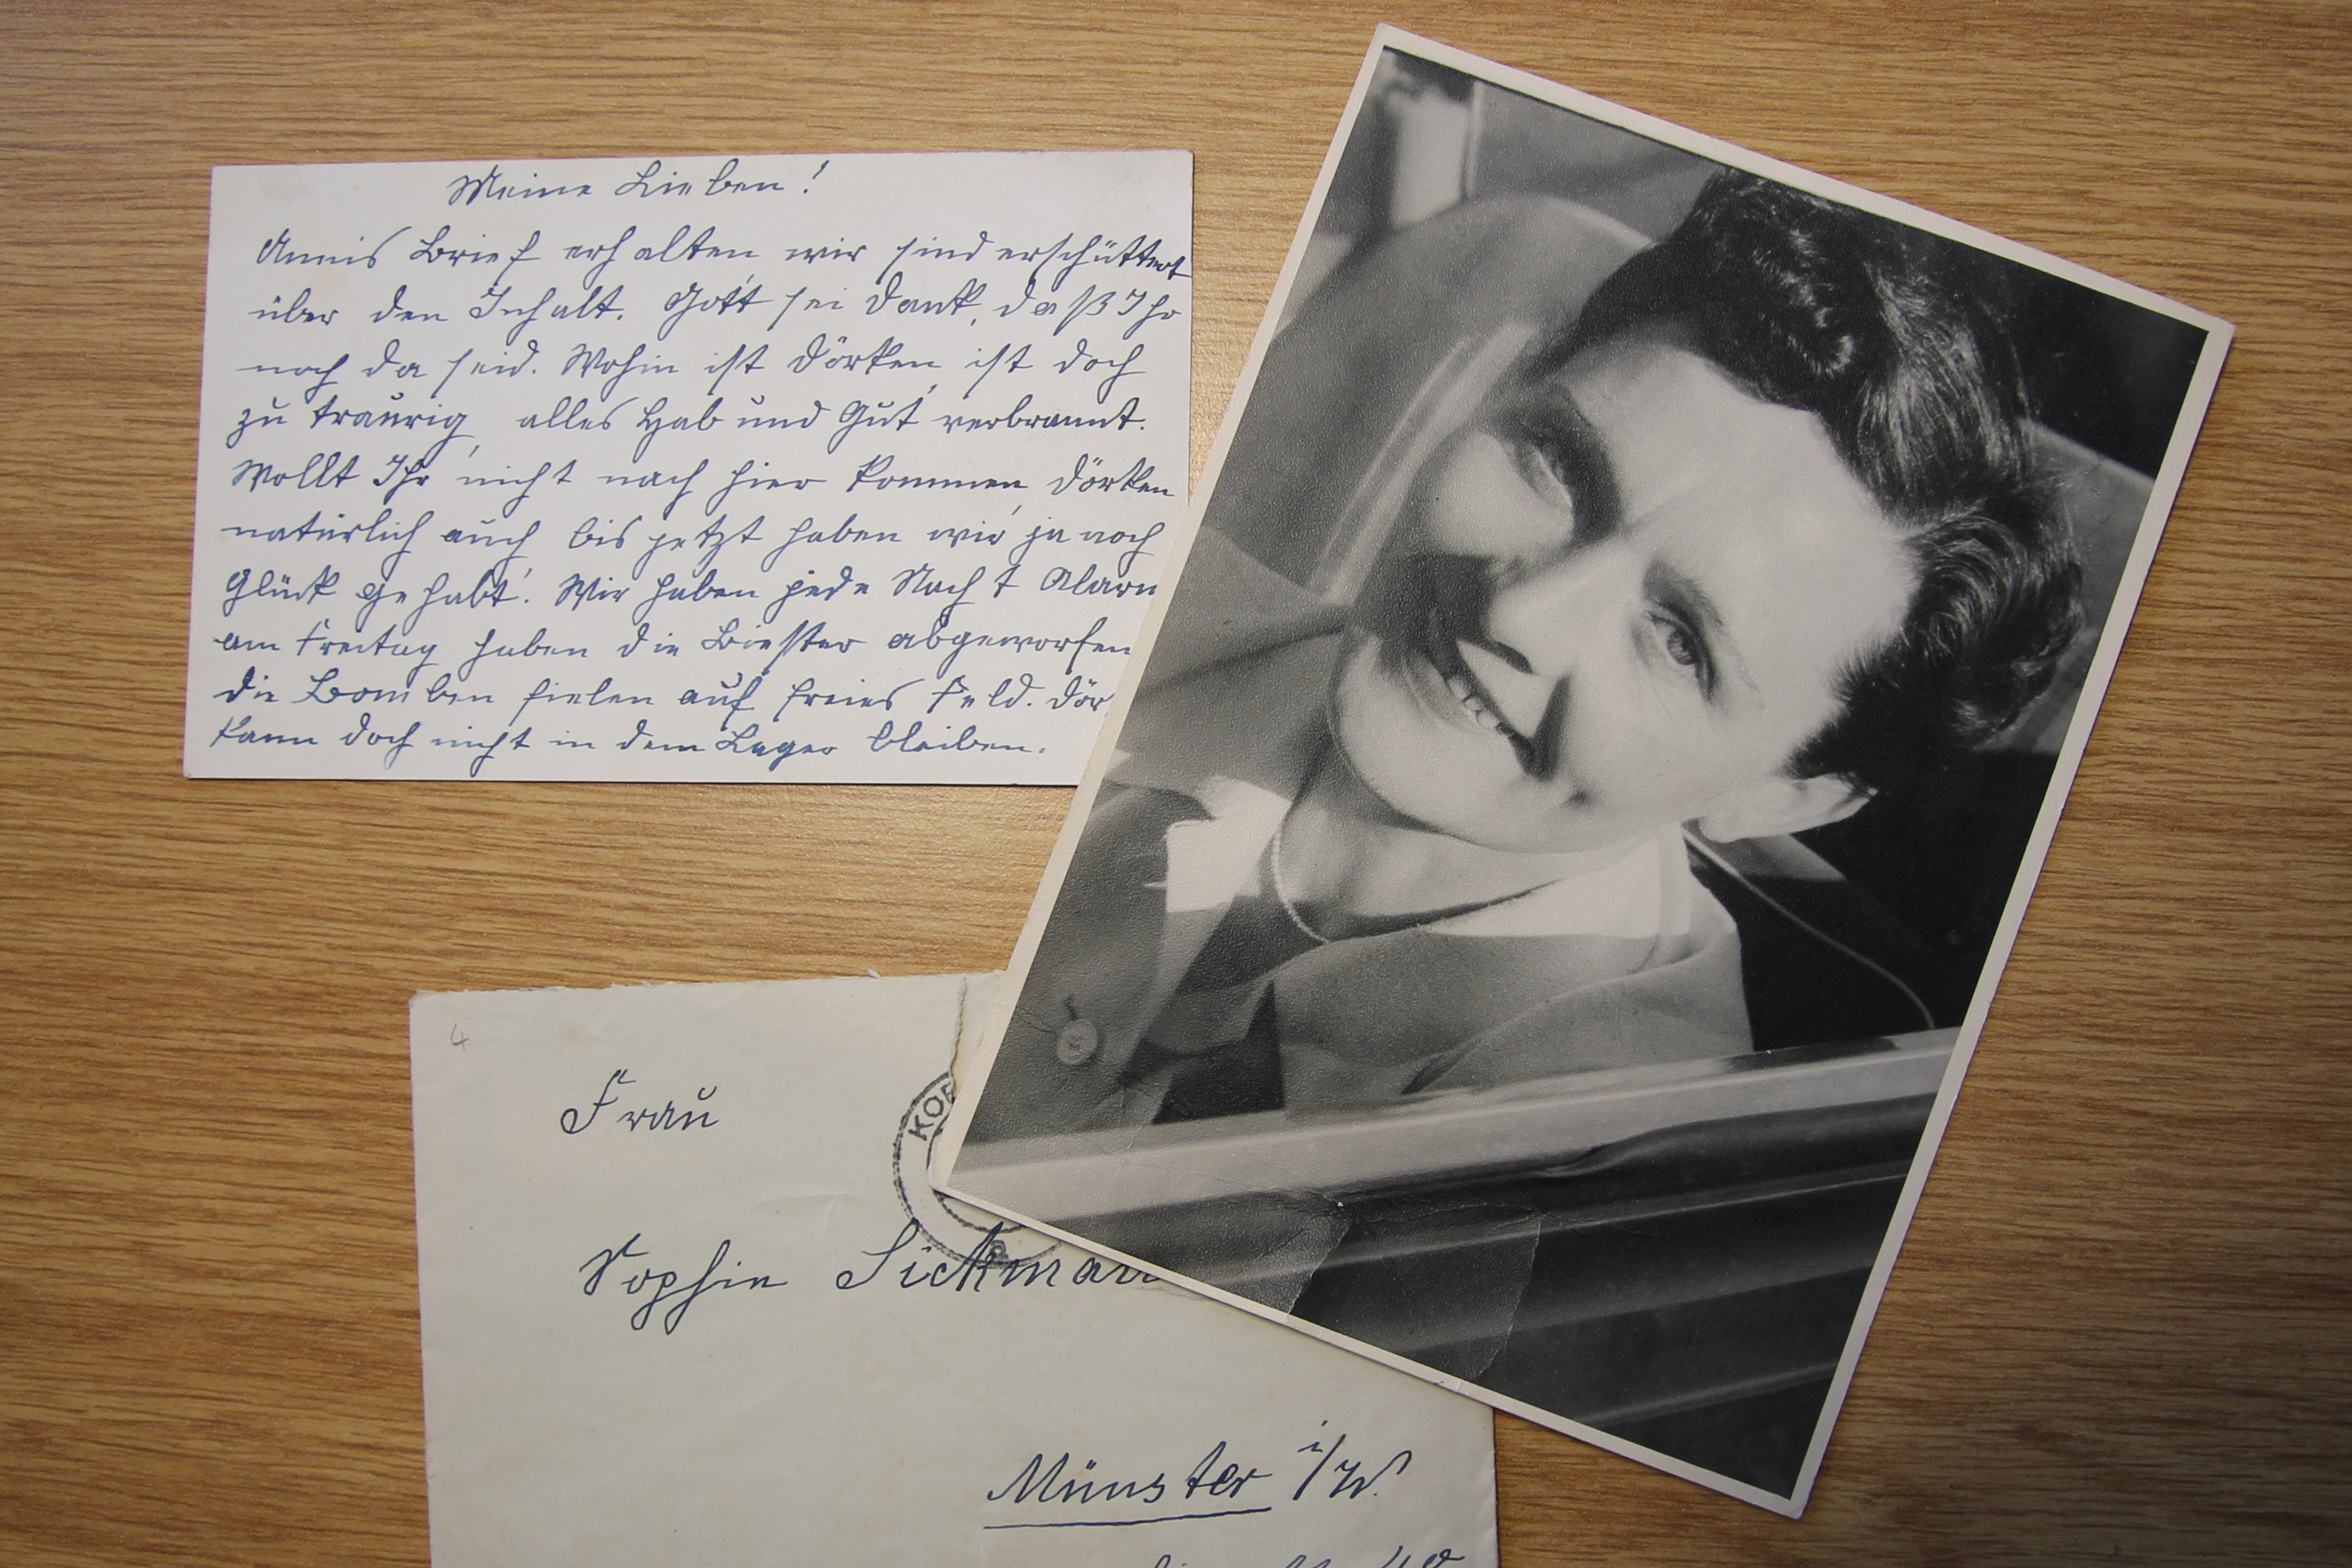 Meine Lieben!
Annis Brief erhalten wir sind erschüttert
über den Inhalt. Gott sei Dank, daß Ihr
noch da seid. Wohin ist Dörken, ist doch
zu traurig, alles Hab und Gut verbrannt.
Wollt Ihr nicht nach hier kommen, Dörken
natürlich auch bis jetzt haben wir ja noch
Glück gehabt. Wir haben jede Nacht Alarm
am Freitag haben die Biester abgeworfen
die Bomben fielen auf freies Feld. Dör
kann doch nicht in dem Lager bleiben.
4
Frau
KOE
Sophie Sickmann
Münster i/W.